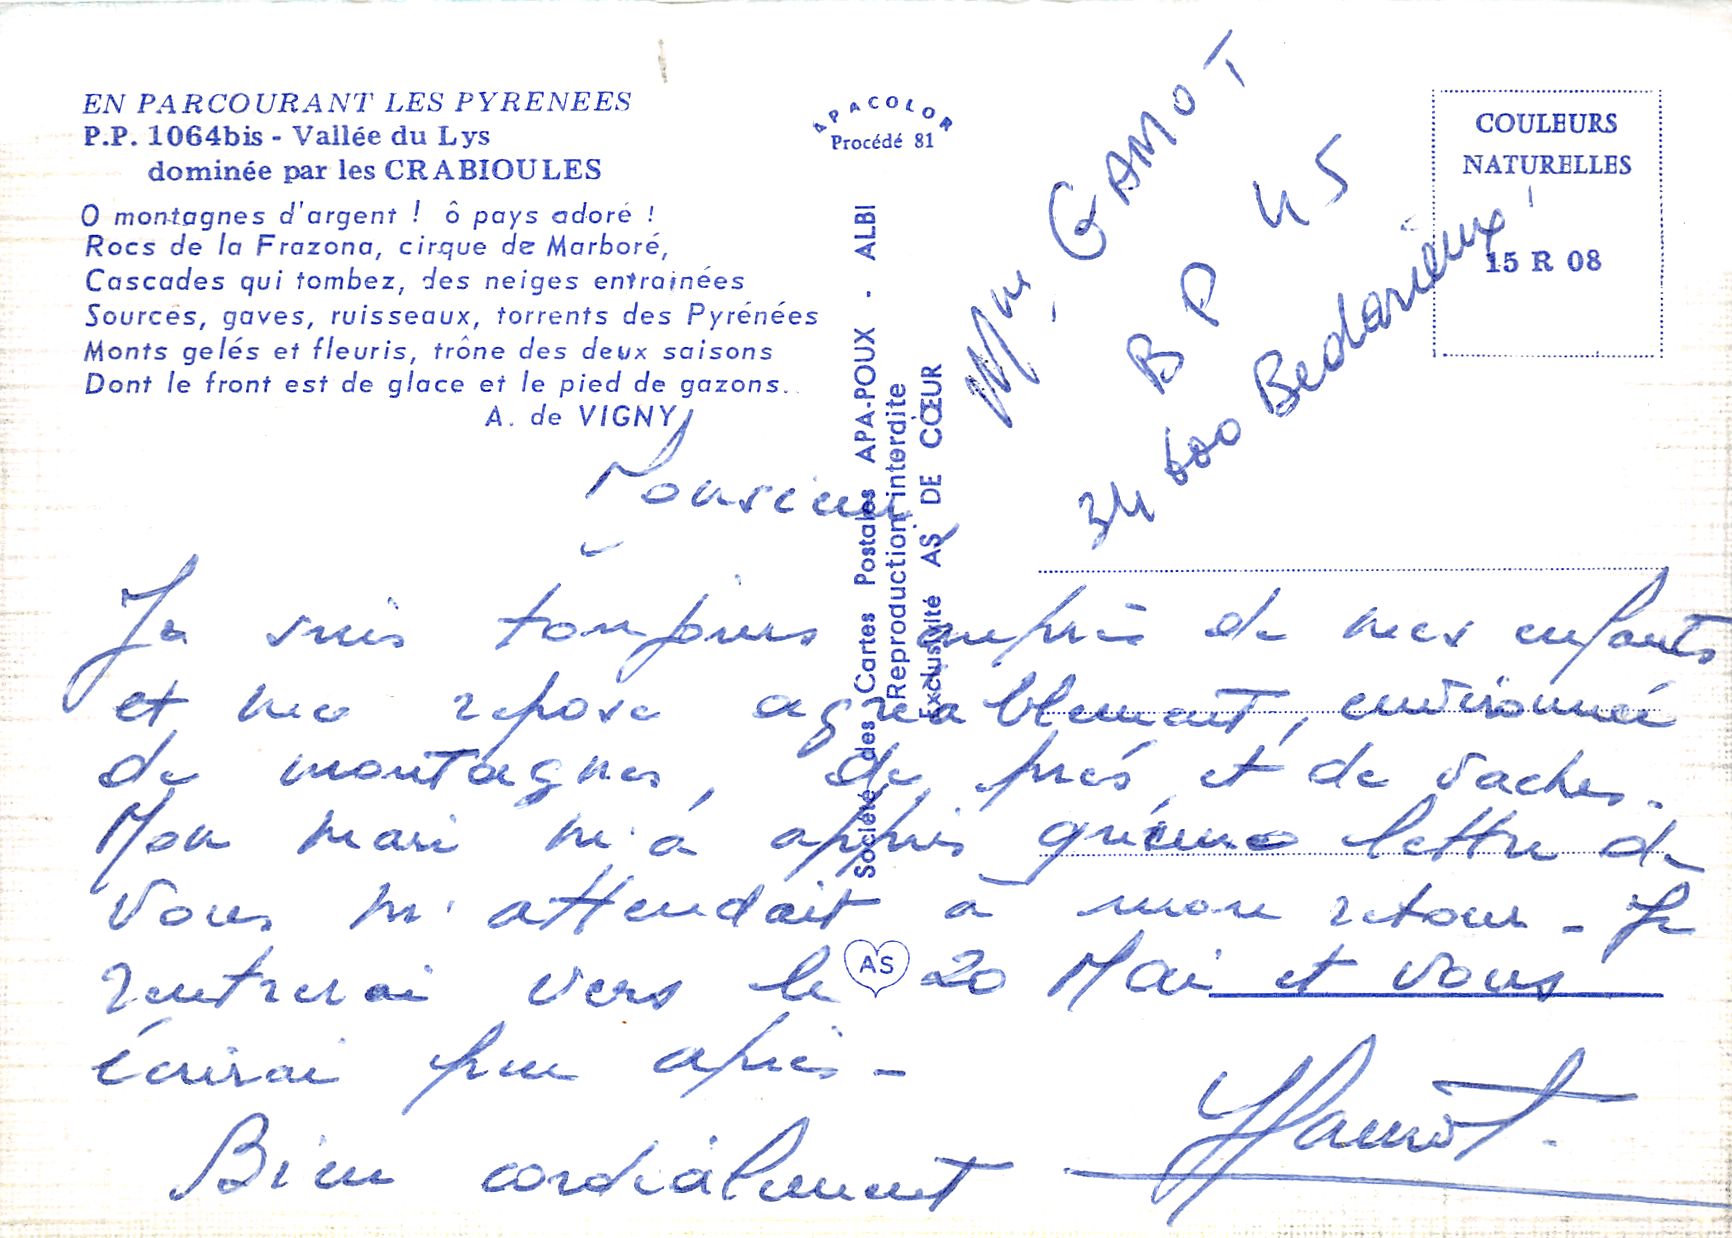 EN PARCOURANT LES PYRENEES
P.P. 1064bis - Vallée du Lys
dominée par les CRABIOULES
O montagnes d'argent ! ô pays adoré !
Rocs de la Frazona, cirque de Marboré,
Cascades qui tombez, des neiges entrainées
Sources, gaves, ruisseaux, torrents des Pyrénées
Monts gelés et fleuris, trône des deux saisons
Dont le front est de glace et le pied de gazons.
A. de VIGNY
APACOLOR
Procédé 81
Société des Cartes Postales APA-POUX - ALBI
Reproduction interdite
Exclusivité AS DE CŒUR
AS
COULEURS
NATURELLES
15 R 08
Mme GAMOT
BP 45
34 600 Bedarieux
Monsieur,
Je suis toujours auprès de mes enfants
et me repose agréablement, environnée
de montagnes, de prés, et de vaches.
Mon mari m'a appris qu'une lettre de
vous m'attendait à mon retour - Je
rentrerai vers le 20 Mai et vous
écrirai peu après -
Bien cordialement
Gamot.